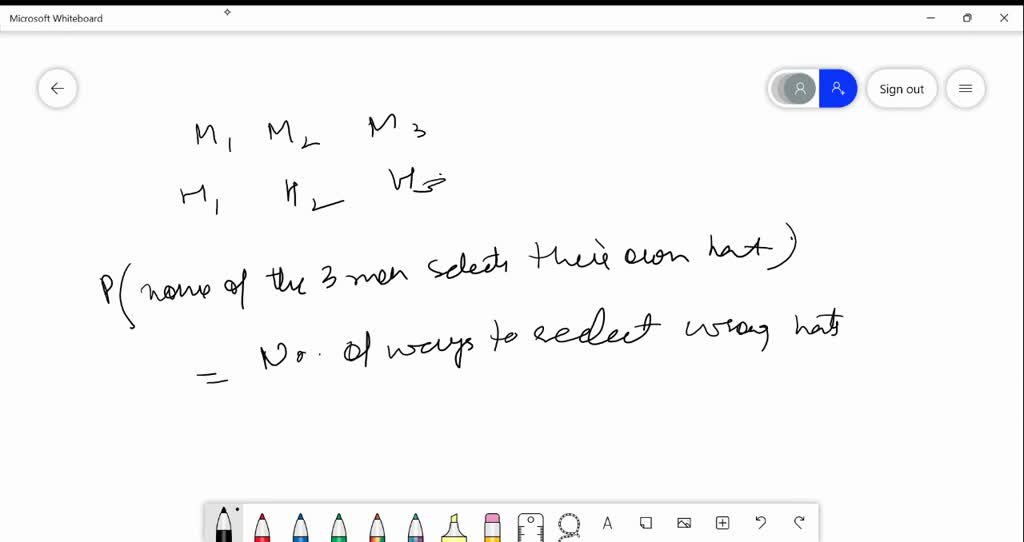 Microsoft Whiteboard
Sign out
M1 M2 M3
H1 H2 H3
P(none of the 3 men selects their own hat)
= No. of ways to select wrong hats
A